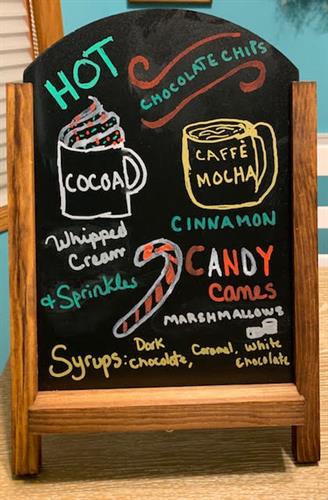 HOT
CHOCOLATE CHIPS
COCOA
CAFFÈ
MOCHA
CINNAMON
Whipped
Cream
+ Sprinkles
CANDY
Canes
MARSHMALLOWS
Syrups: Dark
Chocolate, Caramel, White
Chocolate